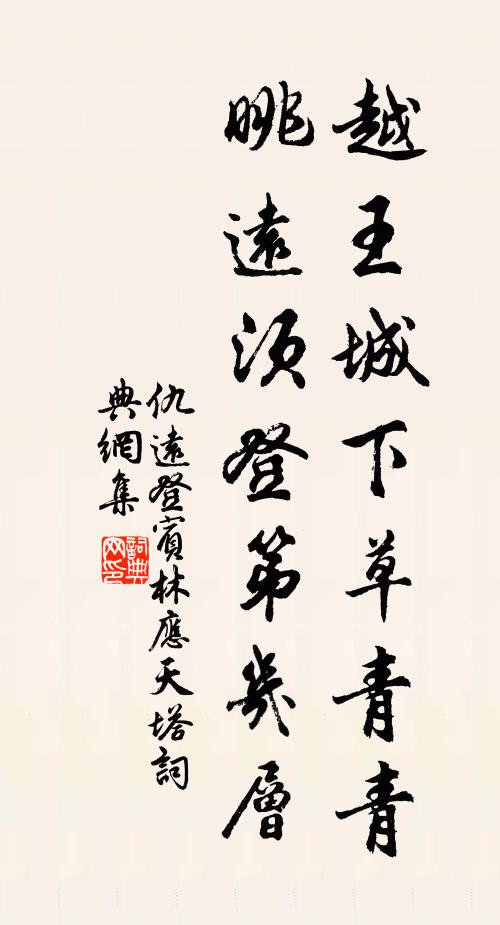 越王城下草青青
眺遠須登第幾層
仇遠登賓林應天塔詞
典網集
詞典
网印